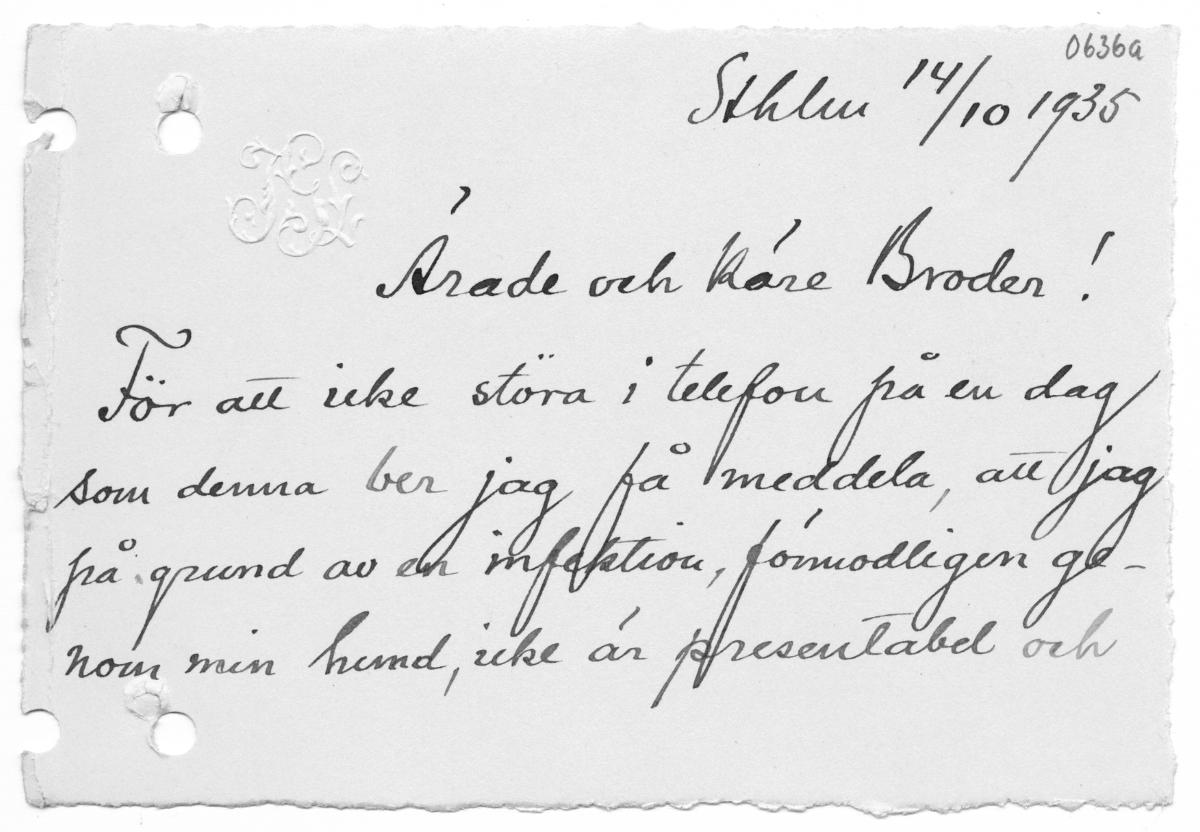 0636a
Sthlm 14/10 1935
Ärade och käre Broder!
För att icke störa i telefon på en dag
som denna ber jag få meddela, att jag
på grund av en infektion, förmodligen ge-
nom min hund, icke är presentabel och